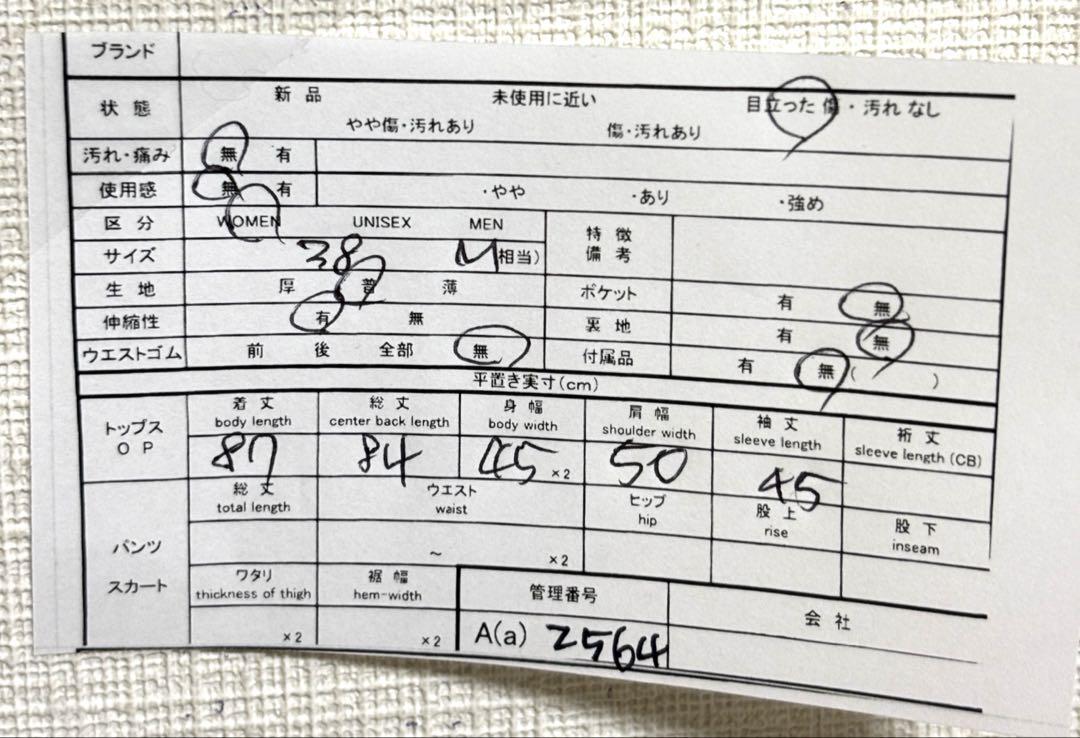 ブランド
状態 新品 未使用に近い 目立った傷・汚れなし
やや傷・汚れあり 傷・汚れあり
汚れ・痛み 無 有
使用感 無 有 ・やや ・あり ・強め
区分 WOMEN UNISEX MEN
特徴
備考
サイズ 38 M 相当)
生地 厚 普 薄
ポケット 有 無
伸縮性 有 無
裏地 有 無
ウエストゴム 前 後 全部 無
付属品 有 無 ( )
平置き実寸(cm)
トップス
OP
着丈 総丈 身幅 肩幅 袖丈 裄丈
body length center back length body width shoulder width sleeve length sleeve length (CB)
87 84 45 ×2 50 45
総丈 ウエスト ヒップ 股上 股下
total length waist hip rise inseam
パンツ
~ ×2
スカート
ワタリ 裾幅
thickness of thigh hem-width
×2 ×2
管理番号 会社
A(a) 2564